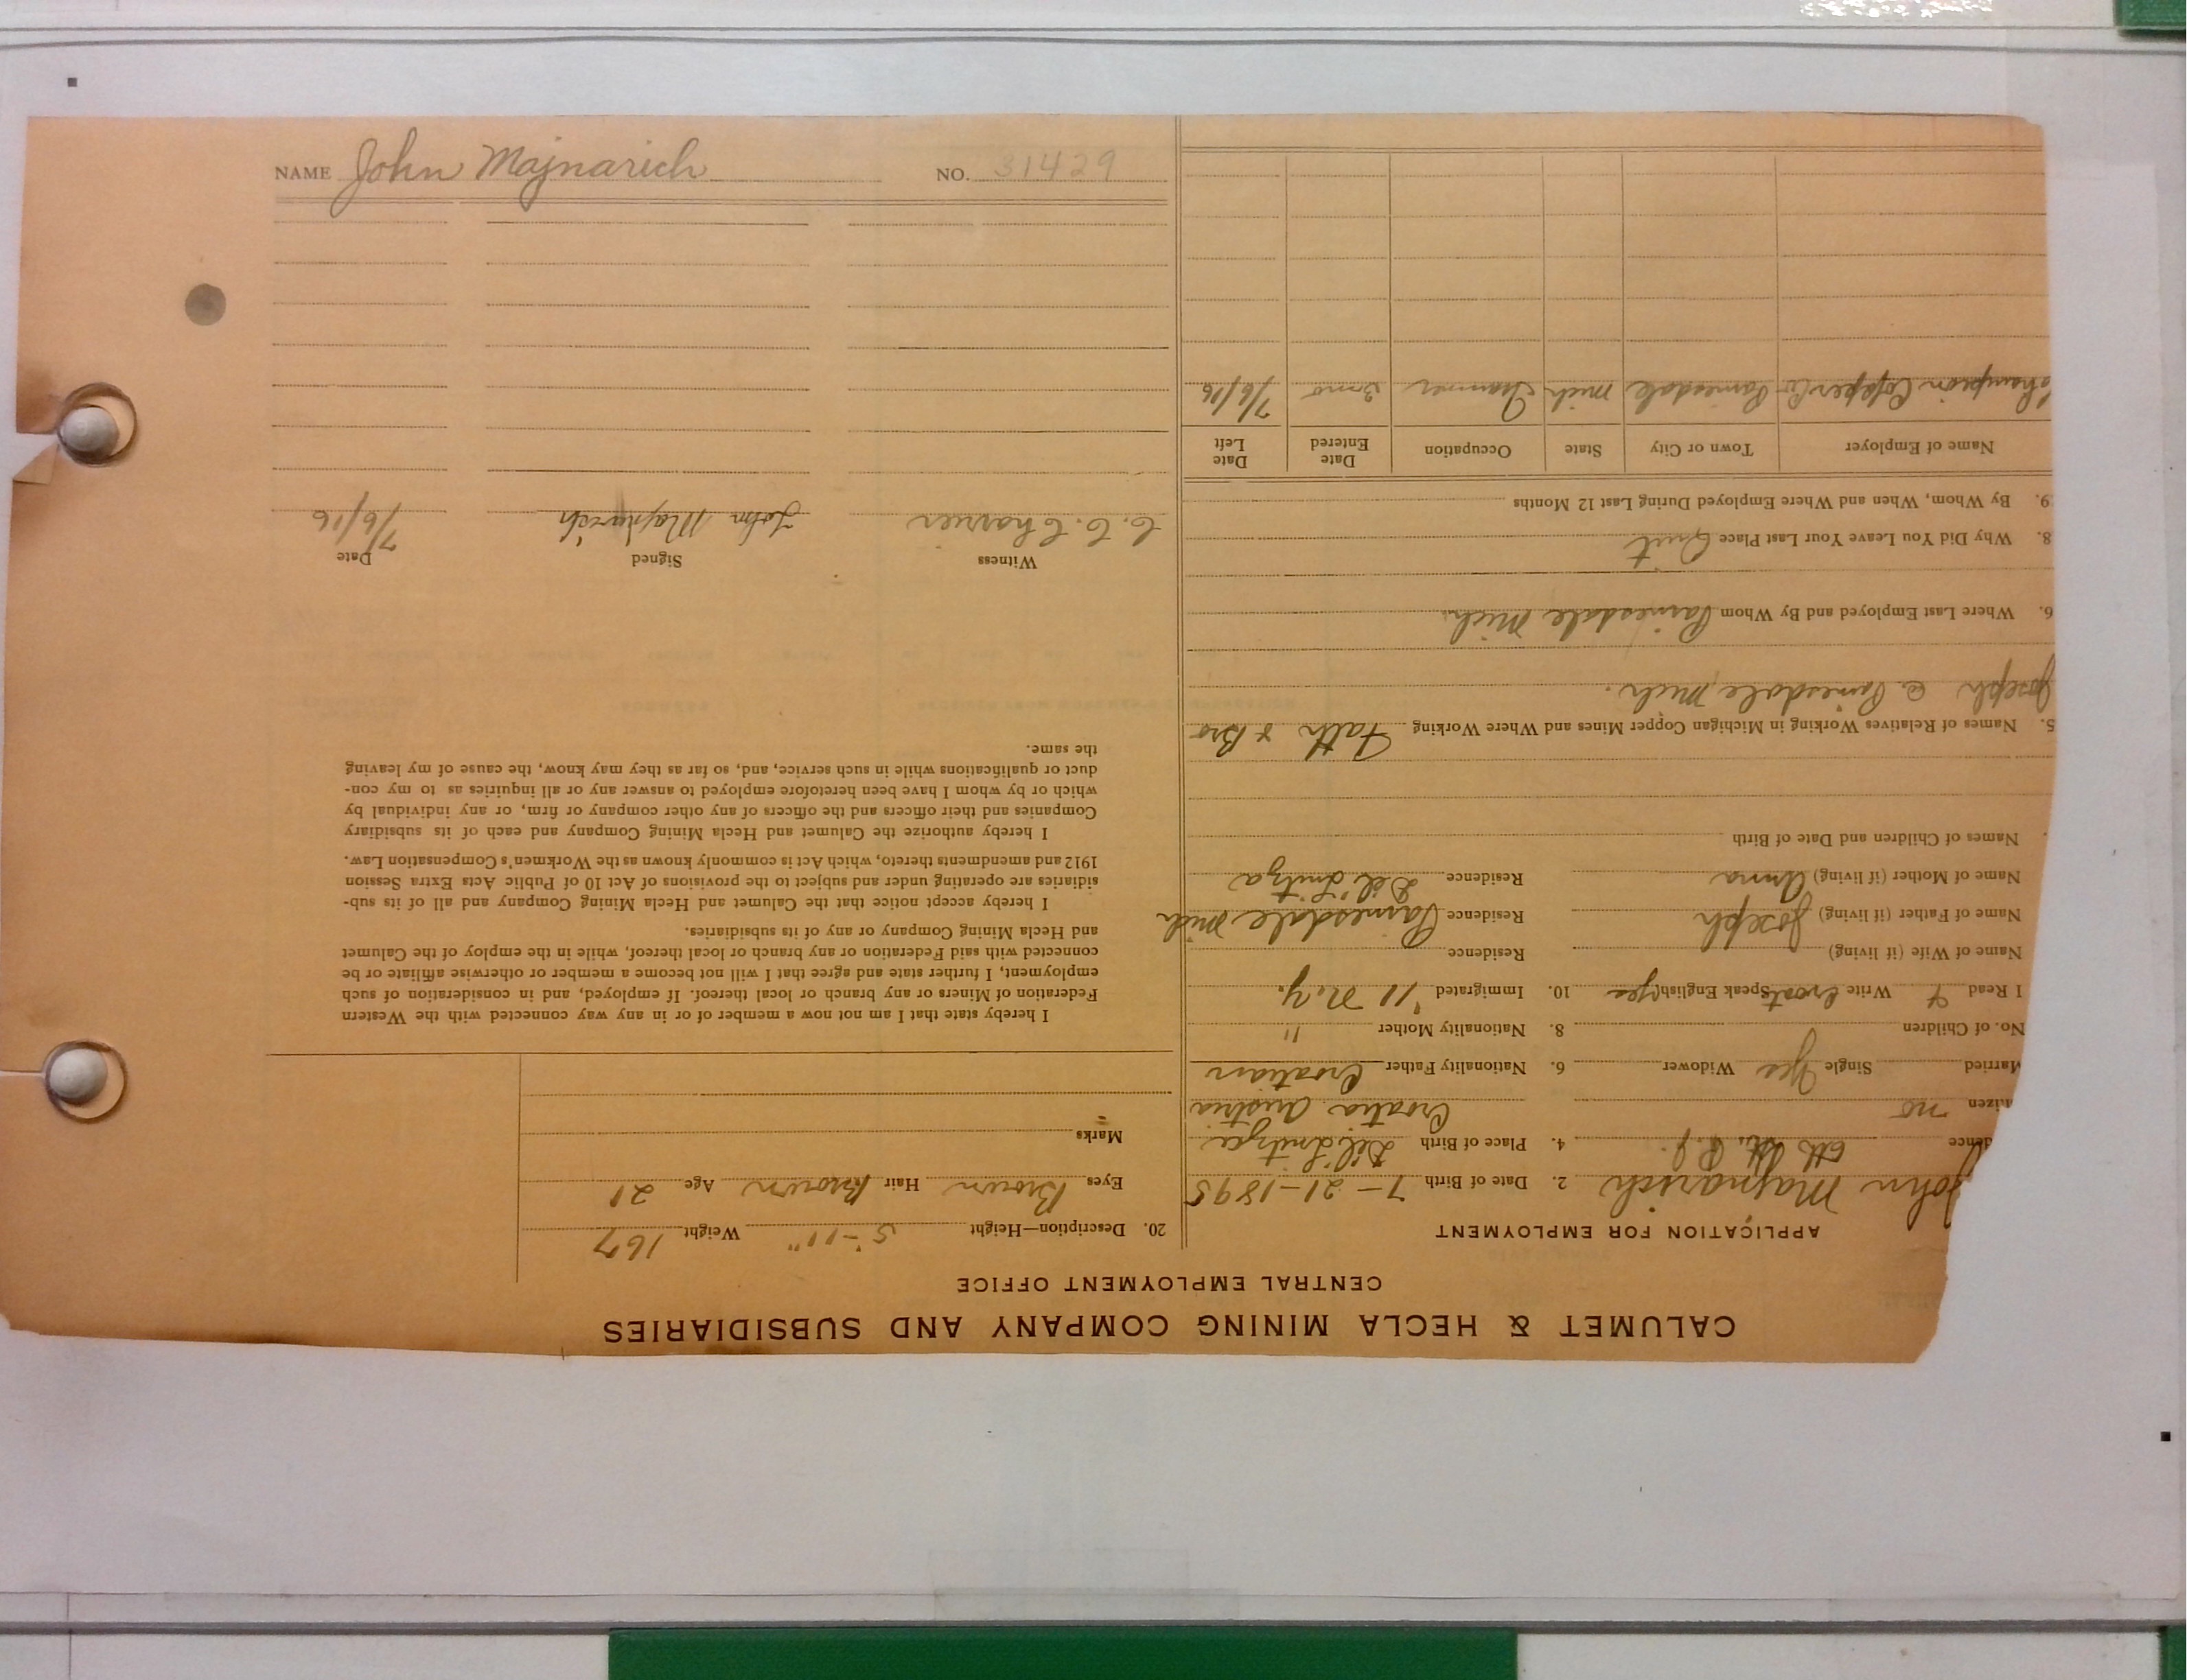 NAME John Majnarich NO. 31429
CALUMET & HECLA MINING COMPANY AND SUBSIDIARIES
CENTRAL EMPLOYMENT OFFICE
APPLICATION FOR EMPLOYMENT
John Majnarich 2. Date of Birth 7-21-1895
dence 6th St. P.J. 4. Place of Birth
izen no Croatia Austria
Married Single Yes Widower 6. Nationality Father Croatian
No. of Children 8. Nationality Mother "
I Read & Write Croat Speak English yes 10. Immigrated '11 N.Y.
Name of Wife (if living) Residence
Name of Father (if living) Joseph Residence Painesdale Mich
Name of Mother (if living) Anna Residence
Names of Children and Date of Birth
5. Names of Relatives Working in Michigan Copper Mines and Where Working Fath & Bro
Joseph @ Painesdale Mich.
6. Where Last Employed and By Whom Painesdale Mich.
8. Why Did You Leave Your Last Place Quit
9. By Whom, When and Where Employed During Last 12 Months
Name of Employer Town or City State Occupation Date Entered Date Left
Champion Copper Co Painesdale Mich Trammer 3 mo 7/6/16
20. Description—Height 5'-11" Weight 167
Eyes Brown Hair Brown Age 21
Marks
I hereby state that I am not now a member of or in any way connected with the Western
Federation of Miners or any branch or local thereof. If employed, and in consideration of such
employment, I further state and agree that I will not become a member or otherwise affiliate or be
connected with said Federation or any branch or local thereof, while in the employ of the Calumet
and Hecla Mining Company or any of its subsidiaries.
I hereby accept notice that the Calumet and Hecla Mining Company and all of its sub-
sidiaries are operating under and subject to the provisions of Act 10 of Public Acts Extra Session
1912 and amendments thereto, which Act is commonly known as the Workmen's Compensation Law.
I hereby authorize the Calumet and Hecla Mining Company and each of its subsidiary
Companies and their officers and the officers of any other company or firm, or any individual by
which or by whom I have been heretofore employed to answer any or all inquiries as to my con-
duct or qualifications while in such service, and, so far as they may know, the cause of my leaving
the same.
Witness Signed Date
C. C. Charrier John Majnarich 7/6/16